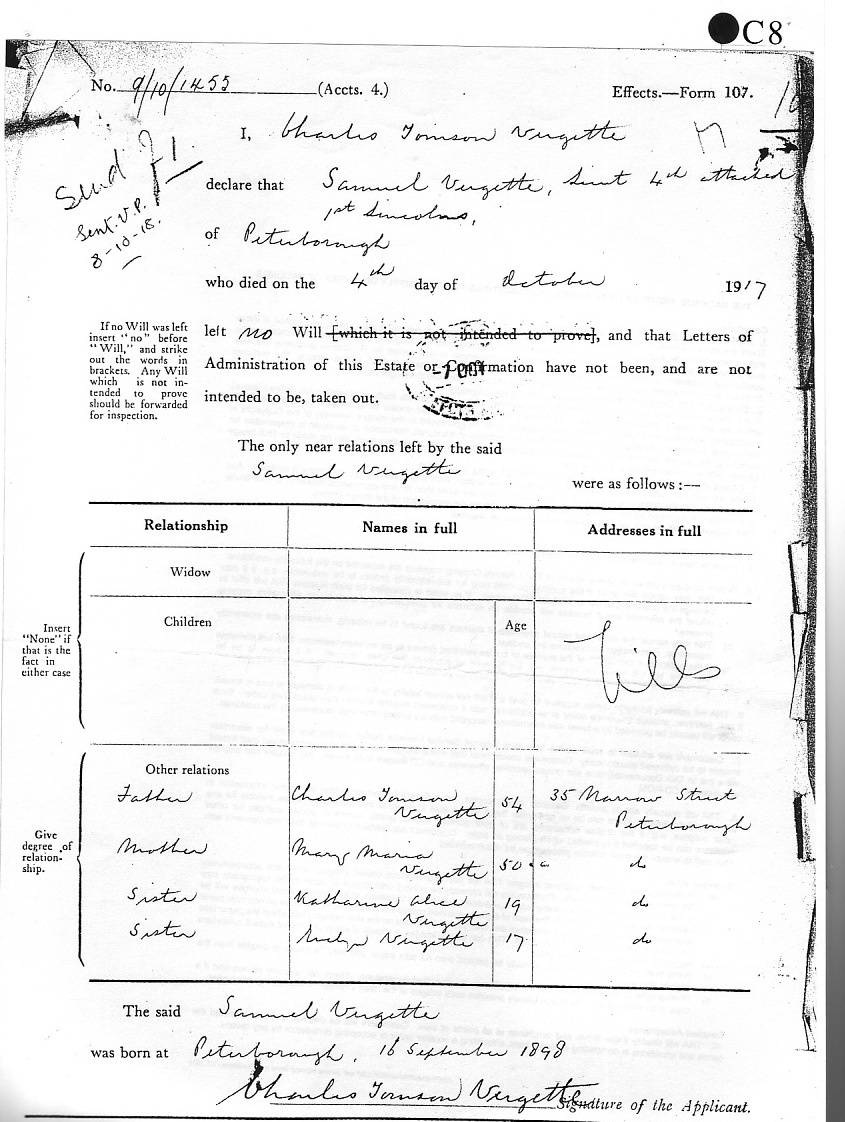 C8
No. 9/10/1455 (Accts. 4.) Effects.—Form 107.
Send
Sent. V.P.
8-10-18.
I, Charles Tomson Vergette
declare that Samuel Vergette, Lieut 4th attached
1st Lincolns,
of Peterborough
who died on the 4th day of October 1917
If no Will was left
insert "no" before
"Will," and strike
out the words in
brackets. Any Will
which is not in-
tended to prove
should be forwarded
for inspection.
left no Will [which it is not intended to prove], and that Letters of
Administration of this Estate or Confirmation have not been, and are not
intended to be, taken out.
The only near relations left by the said
Samuel Vergette were as follows :—
Relationship Names in full Addresses in full
Insert
"None" if
that is the
fact in
either case
Widow
Children Age
Give
degree of
relation-
ship.
Other relations
Father Charles Tomson Vergette 54 35 Narrow Street
Peterborough
Mother Mary Maria Vergette 50 do
Sister Katharine Alice Vergette 19 do
Sister Evelyn Vergette 17 do
The said Samuel Vergette
was born at Peterborough, 16 September 1898
Charles Tomson Vergette
Signature of the Applicant.